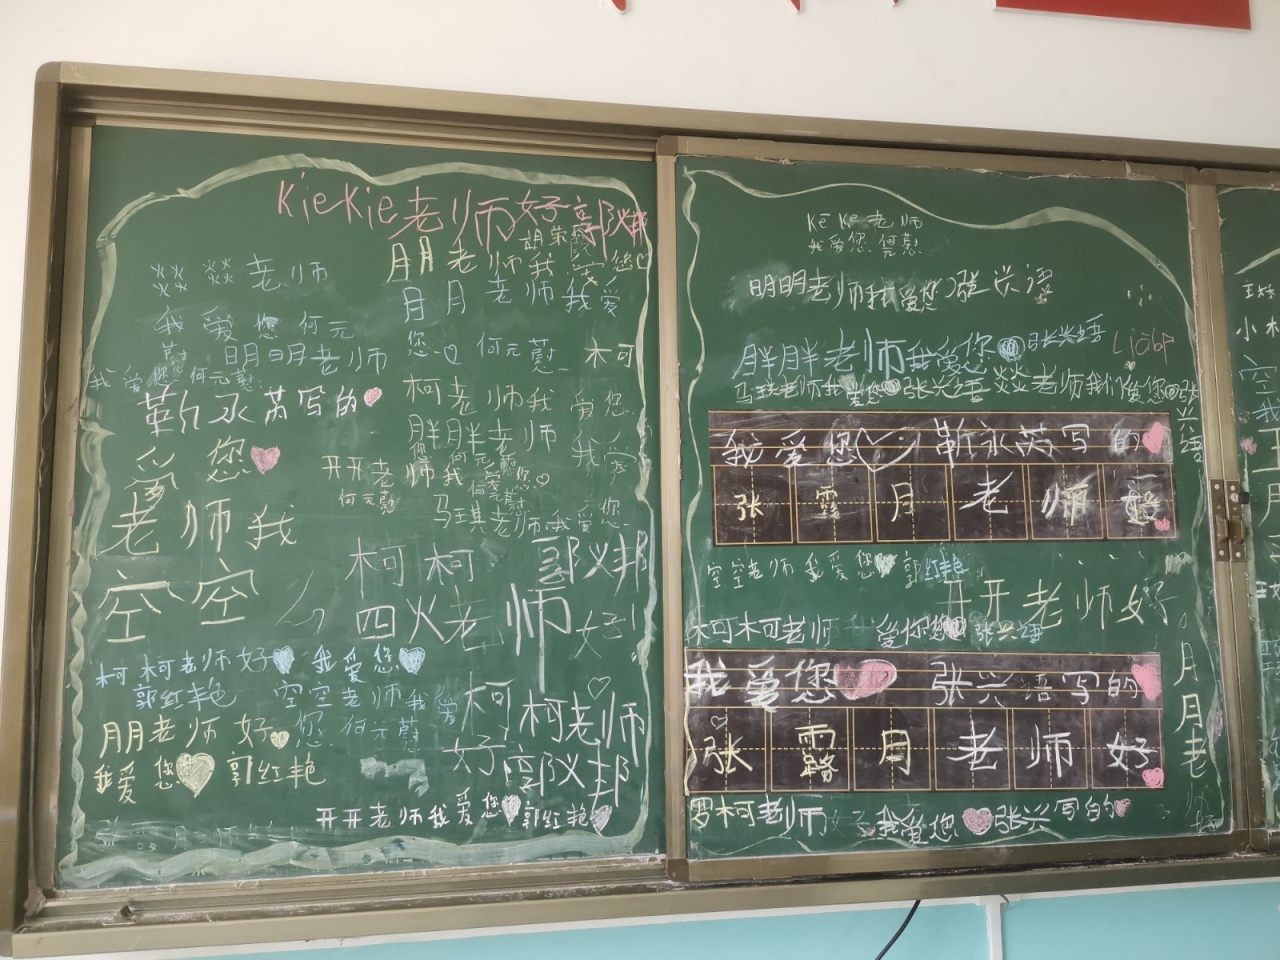 KieKie老师好郭义邦
朋老师我爱您
燚燚老师
月月老师我爱
我爱您何元
您何元薏
明明老师
我爱您何元薏
柯
柯老师我
爱您
靳永芮写的
胖胖老师
我爱
爱您
开开老
师我
您
何元薏
马琪老师我爱您
老师我
空空
柯柯
郭义邦
四火老师好
柯柯老师好 我爱您
郭红艳
空空老师我爱
您何元薏
柯柯老师
好郭义邦
朋老师好
我爱您
郭红艳
开开老师我爱您郭红艳
Ke Ke老师
我爱您何元薏
明明老师我爱您张兴语
胖胖老师我爱您张兴语
马琪老师我爱您张兴语燚燚老师我们爱您张兴语
我爱您 靳永芮写的
张露月老师
空空老师我爱您郭红艳
开开老师好
柯柯老师 爱你您张兴语
我爱您 张兴语写的
张露月老师好
月月老师好
罗柯老师 我爱您张兴写的
小
空
我